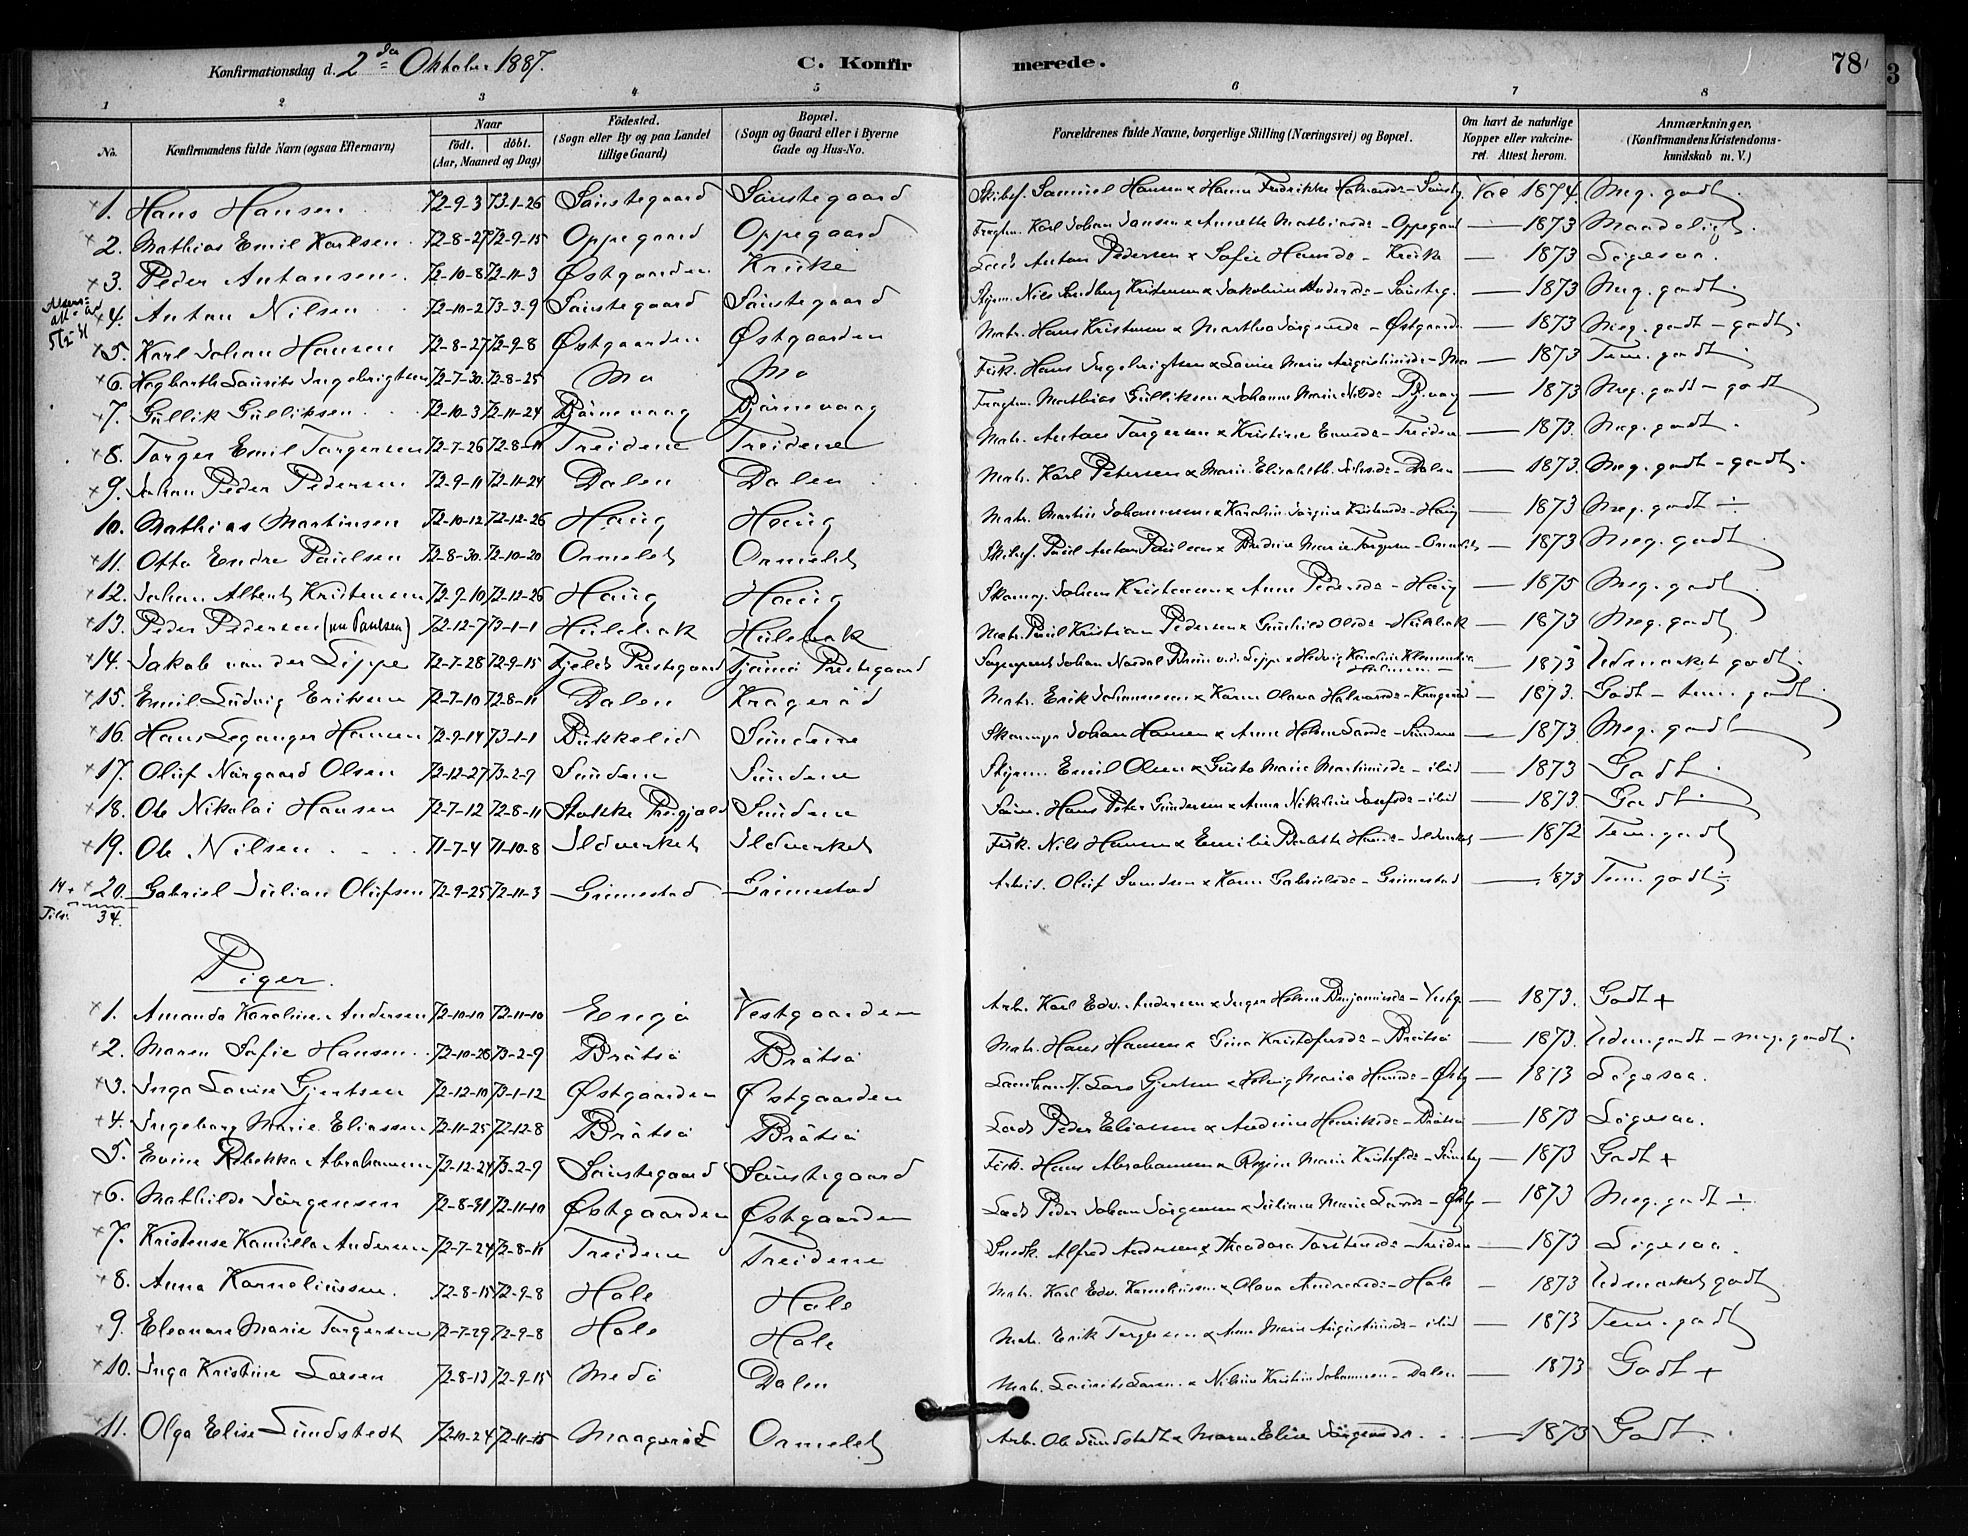 Konfirmationsdag d. 2den Oktober 1887. C. Konfirmerede. 78
1 2 3 4 5 6 7 8
No. Konfirmandens fulde Navn (ogsaa Efternavn) Naar födt. döbt. (Aar, Maaned og Dag) Födested. (Sogn eller By og paa Landet tillige Gaard) Bopæl. (Sogn og Gaard eller i Byerne Gade og Hus-No. Forældrenes fulde Navne, borgerlige Stilling (Næringsvei) og Bopæl. Om havt de naturlige Kopper eller vakcineret. Attest herom. Anmærkninger. (Konfirmandens Kristendomskundskab m. V.)
1. Hans Hansen 72-9-3 73-1-26 Sönstegaard Sönstegaard Skibsf. Samuel Hansen & Hanna Fredrikke Vac 1874. Meg. godt.
2. Mathias Emil Karlsen 72-8-27 72-9-15 Oppegaard Oppegaard Fragtm. Karl Johan Jansen & Annette Mathiasd. - Oppegaard — 1873 Maadeligt.
3. Peder Antonsen 72-10-8 72-11-3 Østgaarden Kruke Lods Anton Pedersen & Sofie Hansd. - Kruke — 1873 Ligesaa.
4. Anton Nilsen 72-10-2 73-3-9 Sönstegaard Sönstegaard Styrm. Nils Kristensen & Jakobine — 1873 Meg. godt.
5. Karl Johan Hansen 72-8-27 72-9-8 Østgaarden Østgaarden Matr. Hans Kristensen & Martha Jörgensd. - Østgaard. — 1873 Meg. godt - godt.
6. Hagbarth Lauritz Ingebrigtsen 72-7-30 72-8-25 Mo Mo Fisk. Hans Ingebrigtsen & Lovise Marie Augustinusd. - Mo — 1873 Tem. godt.
7. Gullik Gulliksen 72-10-3 72-11-24 Bjørnevaag Bjørnevaag Fragtm. Mathias Gulliksen & Johanne Marie Nilsd. Bj.vaag — 1873 Meg. godt - godt
8. Torger Emil Torgersen 72-7-26 72-8-11 Treidene Treidene Matr. Anton Torgersen & Kristine - Treidene — 1873. Meg. godt.
9. Johan Peder Pedersen 72-9-11 72-11-24 Dalen Dalen Matr. Karl Petersen & Marie Elisabeth - Dalen — 1873. Meg. godt - godt.
10. Mathias Martinsen 72-10-12 72-12-26 Haug Haug Matr. Martin Johannesen & Karoline Jörgine Kristensd. - Haug — 1873 Meg. godt ÷
11. Otto Endre Paulsen 72-8-30 72-10-20 Ormelet Ormelet Skibsf. Paul Anton Paulsen & Marie Torgersen - Ormelet — 1873 Meg. godt
12. Johan Albert Kristensen 72-9-10 72-12-26 Haug Haug Skomag. Johan Kristensen & Anne Pedersd. - Haug — 1875 Meg. godt
13. Peder Pedersen (nu Paulsen) 72-12-7 73-1-1 Hulebak Hulebak Matr. Paul Kristian Pedersen & Gunhild Olsd. - Hulebak — 1873 Meg. godt.
14. Jakob von der Lippe 72-7-28 72-9-15 Fjelds Prestegaard Tjømö Prestegaard Sogneprest Johan Nordal Brun v. d. Lippe & Hedvig Karoline Klementia — 1873 Udmærket godt.
15. Emil Ludvig Eriksen 72-7-10 72-8-11 Dalen Krageröd Matr. Erik Johannesen & Karen Olava Halvorsd. - Krageröd — 1873. Godt - tem. godt.
16. Hans Leganger Hansen 72-9-14 73-1-1 Bukkelid Sundene Skomager Johan Hansen & Anne Helene - Sundene — 1873 Meg. godt
17. Oluf Norgaard Olsen 72-12-27 73-2-9 Sundene Sundene Styrm. Emil Olsen & Gusta Marie Martinusd. - ibid — 1873 Godt.
18. Ole Nikolai Hansen 72-7-12 72-8-11 Stokke Prgjæld Sundene Hans Peter Gundersen & Anna Nikoline Josefsd. - ibid — 1873. Godt.
19. Ole Nilsen 71-7-4 71-10-8 Ildverket Ildverket Fisk. Nils Hansen & Emilie Hansd. - Ildverket — 1872 Tem. godt
14 + 20. Gabriel Julian Olufsen 72-9-25 72-11-3 Grimestad Grimestad Arbeid. Oluf & Karen Gabrielsd. - Grimestad — 1873 Tem. godt ÷
34.
Piger.
1. Amanda Karoline Andersen 72-10-10 72-11-10 Engö Vestgaarden Arb. Karl Edv. Andersen & Inger Helene Benjaminsd. - Vestg. — 1873. Godt +
2. Maren Sofie Hansen 72-10-28 73-2-9 Bråtsö Bråtsö Matr. Hans Hansen & Gina Kristofersd. - Bråtsö — 1873. Udm. godt - meg. godt.
3. Inga Lovise Gjertsen 72-12-10 73-1-12 Østgaarden Østgaarden Landhandl. Lars Gjertsen & Hedvig Maria Hansd. - Østg — 1873 Ligesaa.
4. Ingeborg Marie Eliassen 72-11-25 72-12-8 Bråtsö Bråtsö Lods Peder Eliassen & Andrine Henriksd. - Bråtsö — 1873 Ligesaa.
5. Evine Rebekka Abrahamsen 72-12-24 73-2-9 Sönstegaard Sönstegaard Fisk. Hans Abrahamsen & Regine Marie Kristofsd. — 1873 Godt +
6. Mathilde Jörgensen 72-8-31 72-11-10 Østgaarden Østgaarden Lods Peder Johan Jörgensen & Juliane Marie Larsd. - Østg — 1873 Meg. godt ÷
7. Kristense Kamilla Andersen 72-7-24 72-8-11 Treidene Treidene Snedk. Alfred Andersen & Theodora Torstensd. - Treidene — 1873 Ligesaa.
8. Anna Korneliussen. 72-8-15 72-9-8 Hole Hole Matr. Karl Edv. Korneliussen & Olava Andreasd. - Hole — 1873 Udmærket godt
9. Eleonore Marie Torgersen 72-7-29 72-9-8 Hole Hole Matr. Erik Torgersen & Anne Marie Augustinusd. - ibid — 1873 Tem. godt
10. Inga Kristine Larsen 72-8-13 72-9-15 Medö Dalen Matr. Laurits Larsen & Nilsine Kristine Johannesen - Dalen — 1873 Godt +
11. Olga Elise Sundstedt 72-10-24 72-11-15 Maageröd Ormelet Arb. Ole Sundstedt & Maren Elise Jörgensd. — 1873 Godt.